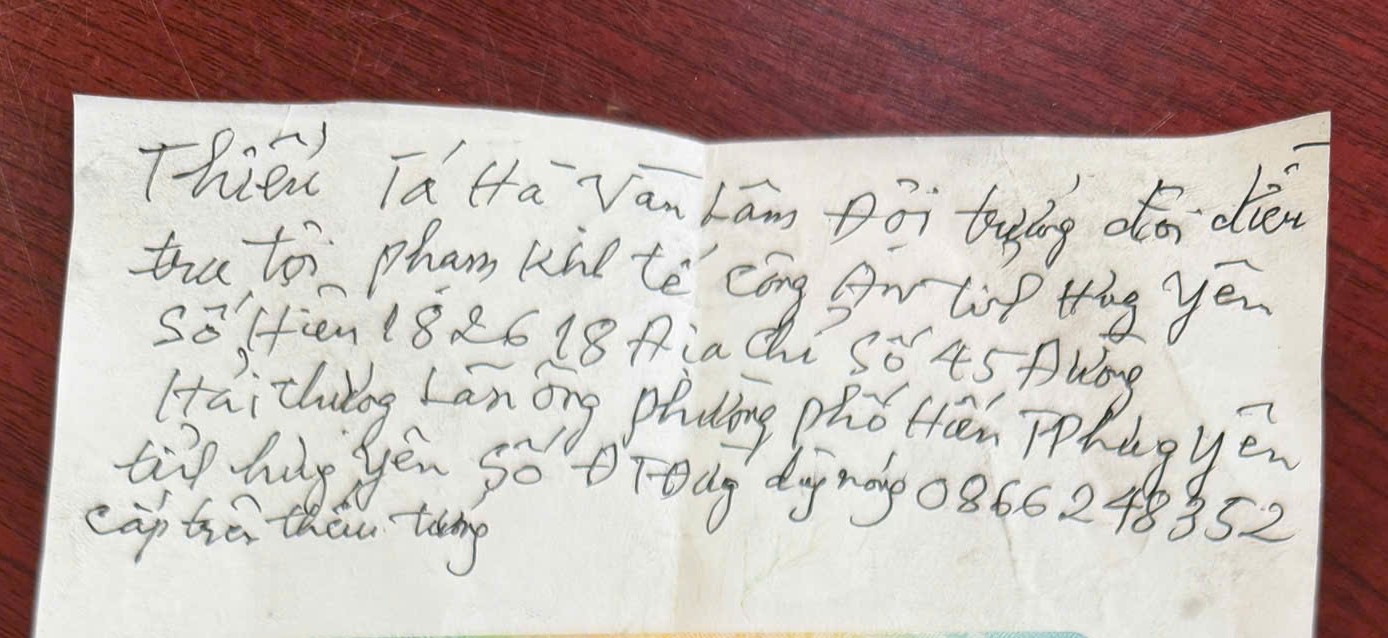 Thiếu Tá Hà Văn Lâm Đội trưởng đội điều
tra tội phạm Kinh tế công An tỉnh Hưng Yên
Số Hiệu 182618 Địa chỉ Số 45 Đường
Hải thượng Lãn ông phường phố Hiến TP hưng Yên
tỉnh hưng Yên Số ĐT đường dây nóng 0866248352
cấp trên thiếu tướng